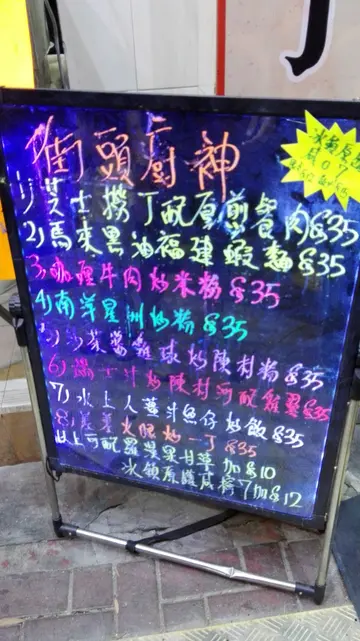 街頭廚神
1) 芝士撈丁配原煎餐肉&35
2) 馬來黑油福建蝦麵&35
3) 咖喱牛肉炒米粉&35
4) 南洋星洲炒粉&35
5) 馬來婆雞球炒陳村粉&35
6) 瑞士汁炒陳村河配雞翼&35
7) 水上人薑汁魚仔炒飯&35
8) 火腿炒一丁&35
以上可配羅漢果甘草加&10
冰鎮加&12